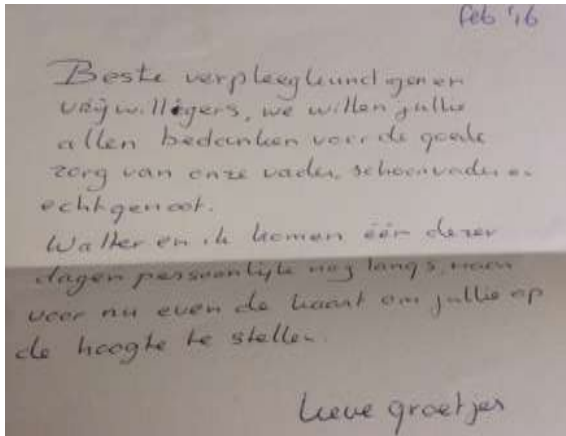 feb '16
Beste verpleegkundigen en
vrijwilligers, we willen jullie
allen bedanken voor de goede
zorg van onze vader, schoonvader en
echtgenoot.
Walter en ik komen één dezer
dagen persoonlijk nog langs, maar
voor nu even de kaart om jullie op
de hoogte te stellen.
Lieve groetjes